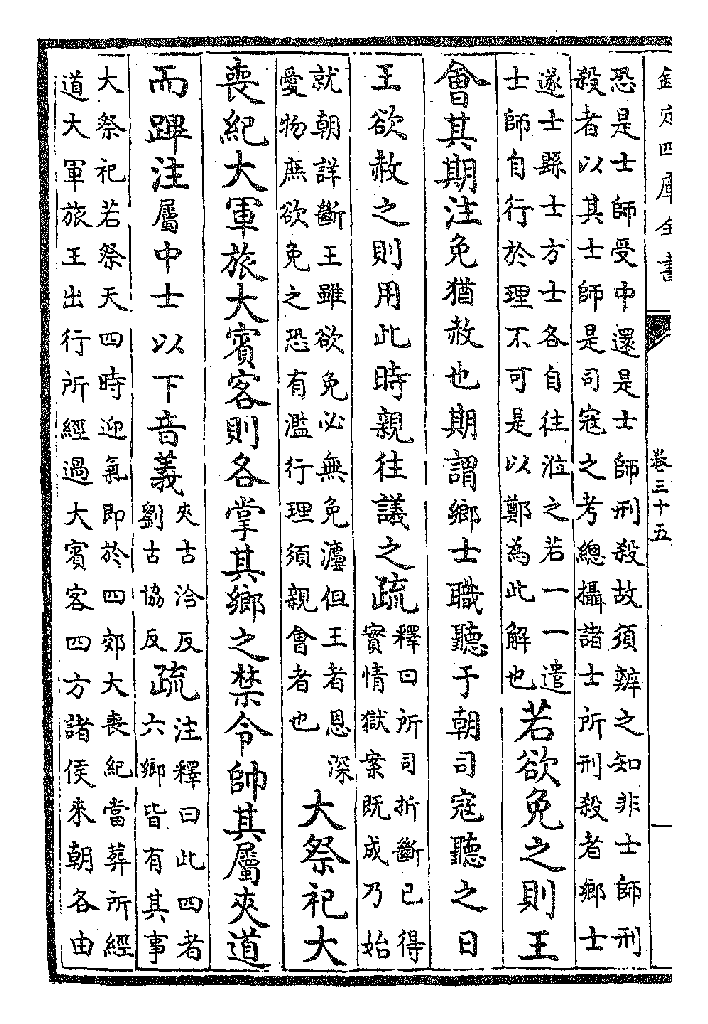 欽定四庫全書
卷三十五
恐是士師受中還是士師刑殺故須辨之知非士師刑
殺者以其士師是司寇之考總攝諸士所刑殺者鄉士
遂士縣士方士各自往涖之若一一遣
士師自行於理不可是以鄭為此解也
若欲免之則王
會其期注免猶赦也期謂鄉士職聽于朝司寇聽之日
王欲赦之則用此時親往議之疏
釋曰所司折斷已得
實情獄案既成乃始
就朝詳斷王雖欲免必無免瀍但王者恩深
愛物庶欲免之恐有濫行理須親會者也
大祭祀大
喪紀大軍旅大賓客則各掌其鄉之禁令帥其屬夾道
而蹕注屬中士以下音義
夾古洽反
劉古協反
疏
注釋曰此四者
六鄉皆有其事
大祭祀若祭天四時迎氣即於四郊大喪紀當葬所經
道大軍旅王出行所經過大賓客四方諸侯來朝各由